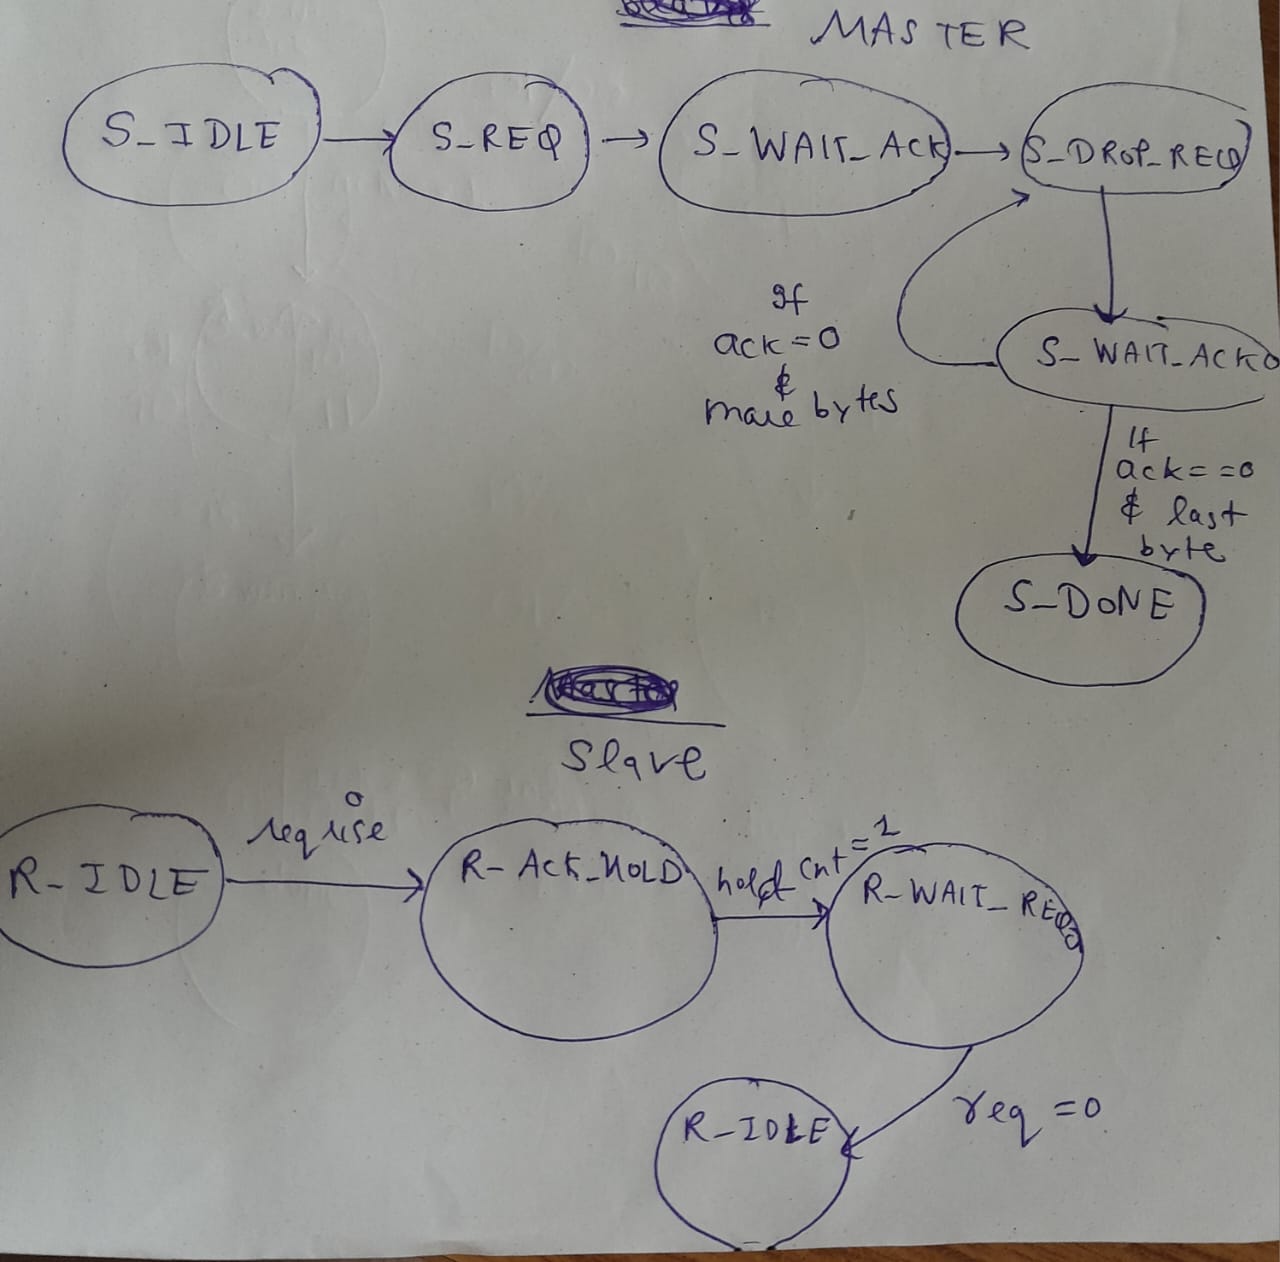 MASTER
S_IDLE
S-REQ
S_WAIT_ACK
S_DROP_REQ
If
ack=0
&
more bytes
S_WAIT_ACK0
If
ack==0
& last
byte
S_DONE
Slave
R_IDLE
req rise
R-ACK_HOLD
hold cnt=1
R_WAIT_REQ0
R_IDLE
req=0